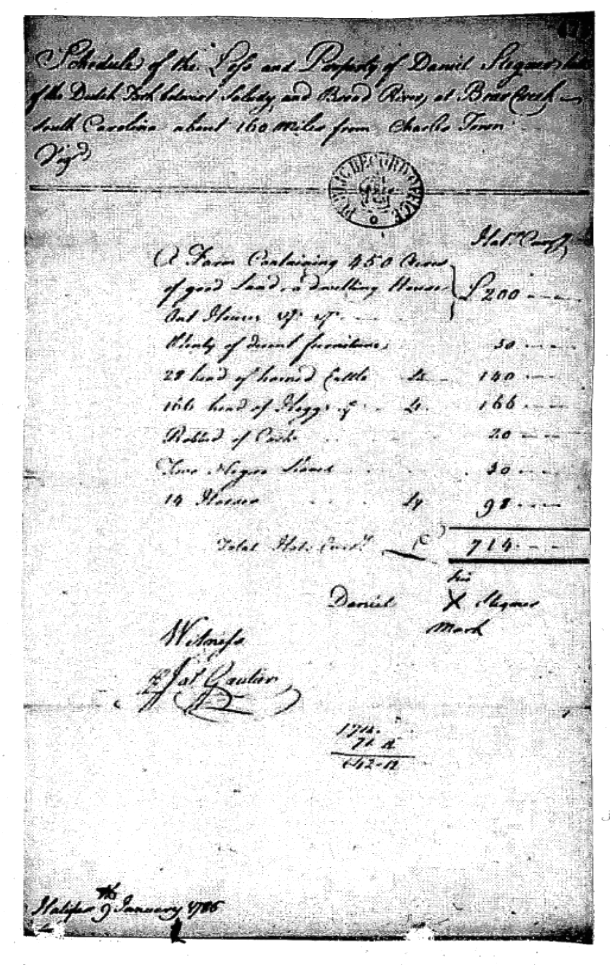 Schedule of the Loss and Property of Daniel Stigmer late
of the Dutch Fork betwixt Saludy and Broad River, at Bear Creek in
South Carolina about 160 Miles from Charles Town
Vizd
PUBLIC RECORD OFFICE
Halx Currcy
A Farm Containing 450 Acres
of good Land, a dwelling House
Out Houses £200
Plenty of decent furniture 30
28 head of horned Cattle 140
166 head of Hoggs 166
Robbed of Cash 20
Two Negro Slaves
14 Horses 98
Total Hal. Currcy £ 714
his
Daniel X Stigmer
Mark
Witness
Jas Gautier
714
71
642
Halifax 9th January 1786